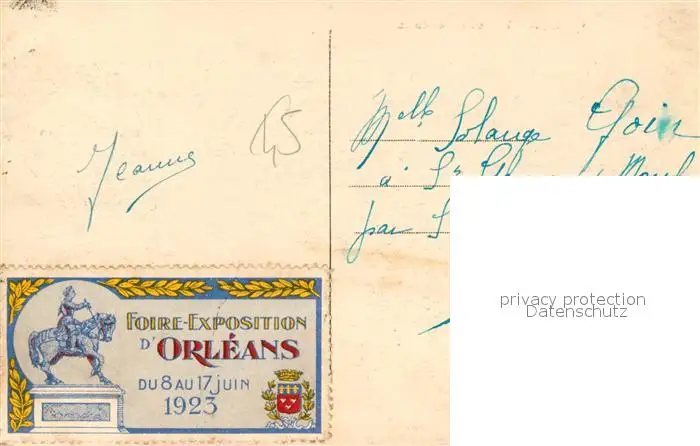 Jeanne
45
Melle Solange
à St
par S
privacy protection
Datenschutz
FOIRE-EXPOSITION
D'ORLÉANS
DU 8 AU 17 JUIN
1923